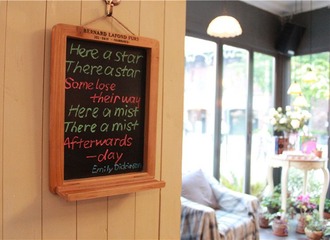 Here a star
There a star
Some lose
their way
Here a mist
There a mist
Afterwards
—day
Emily Dickinson